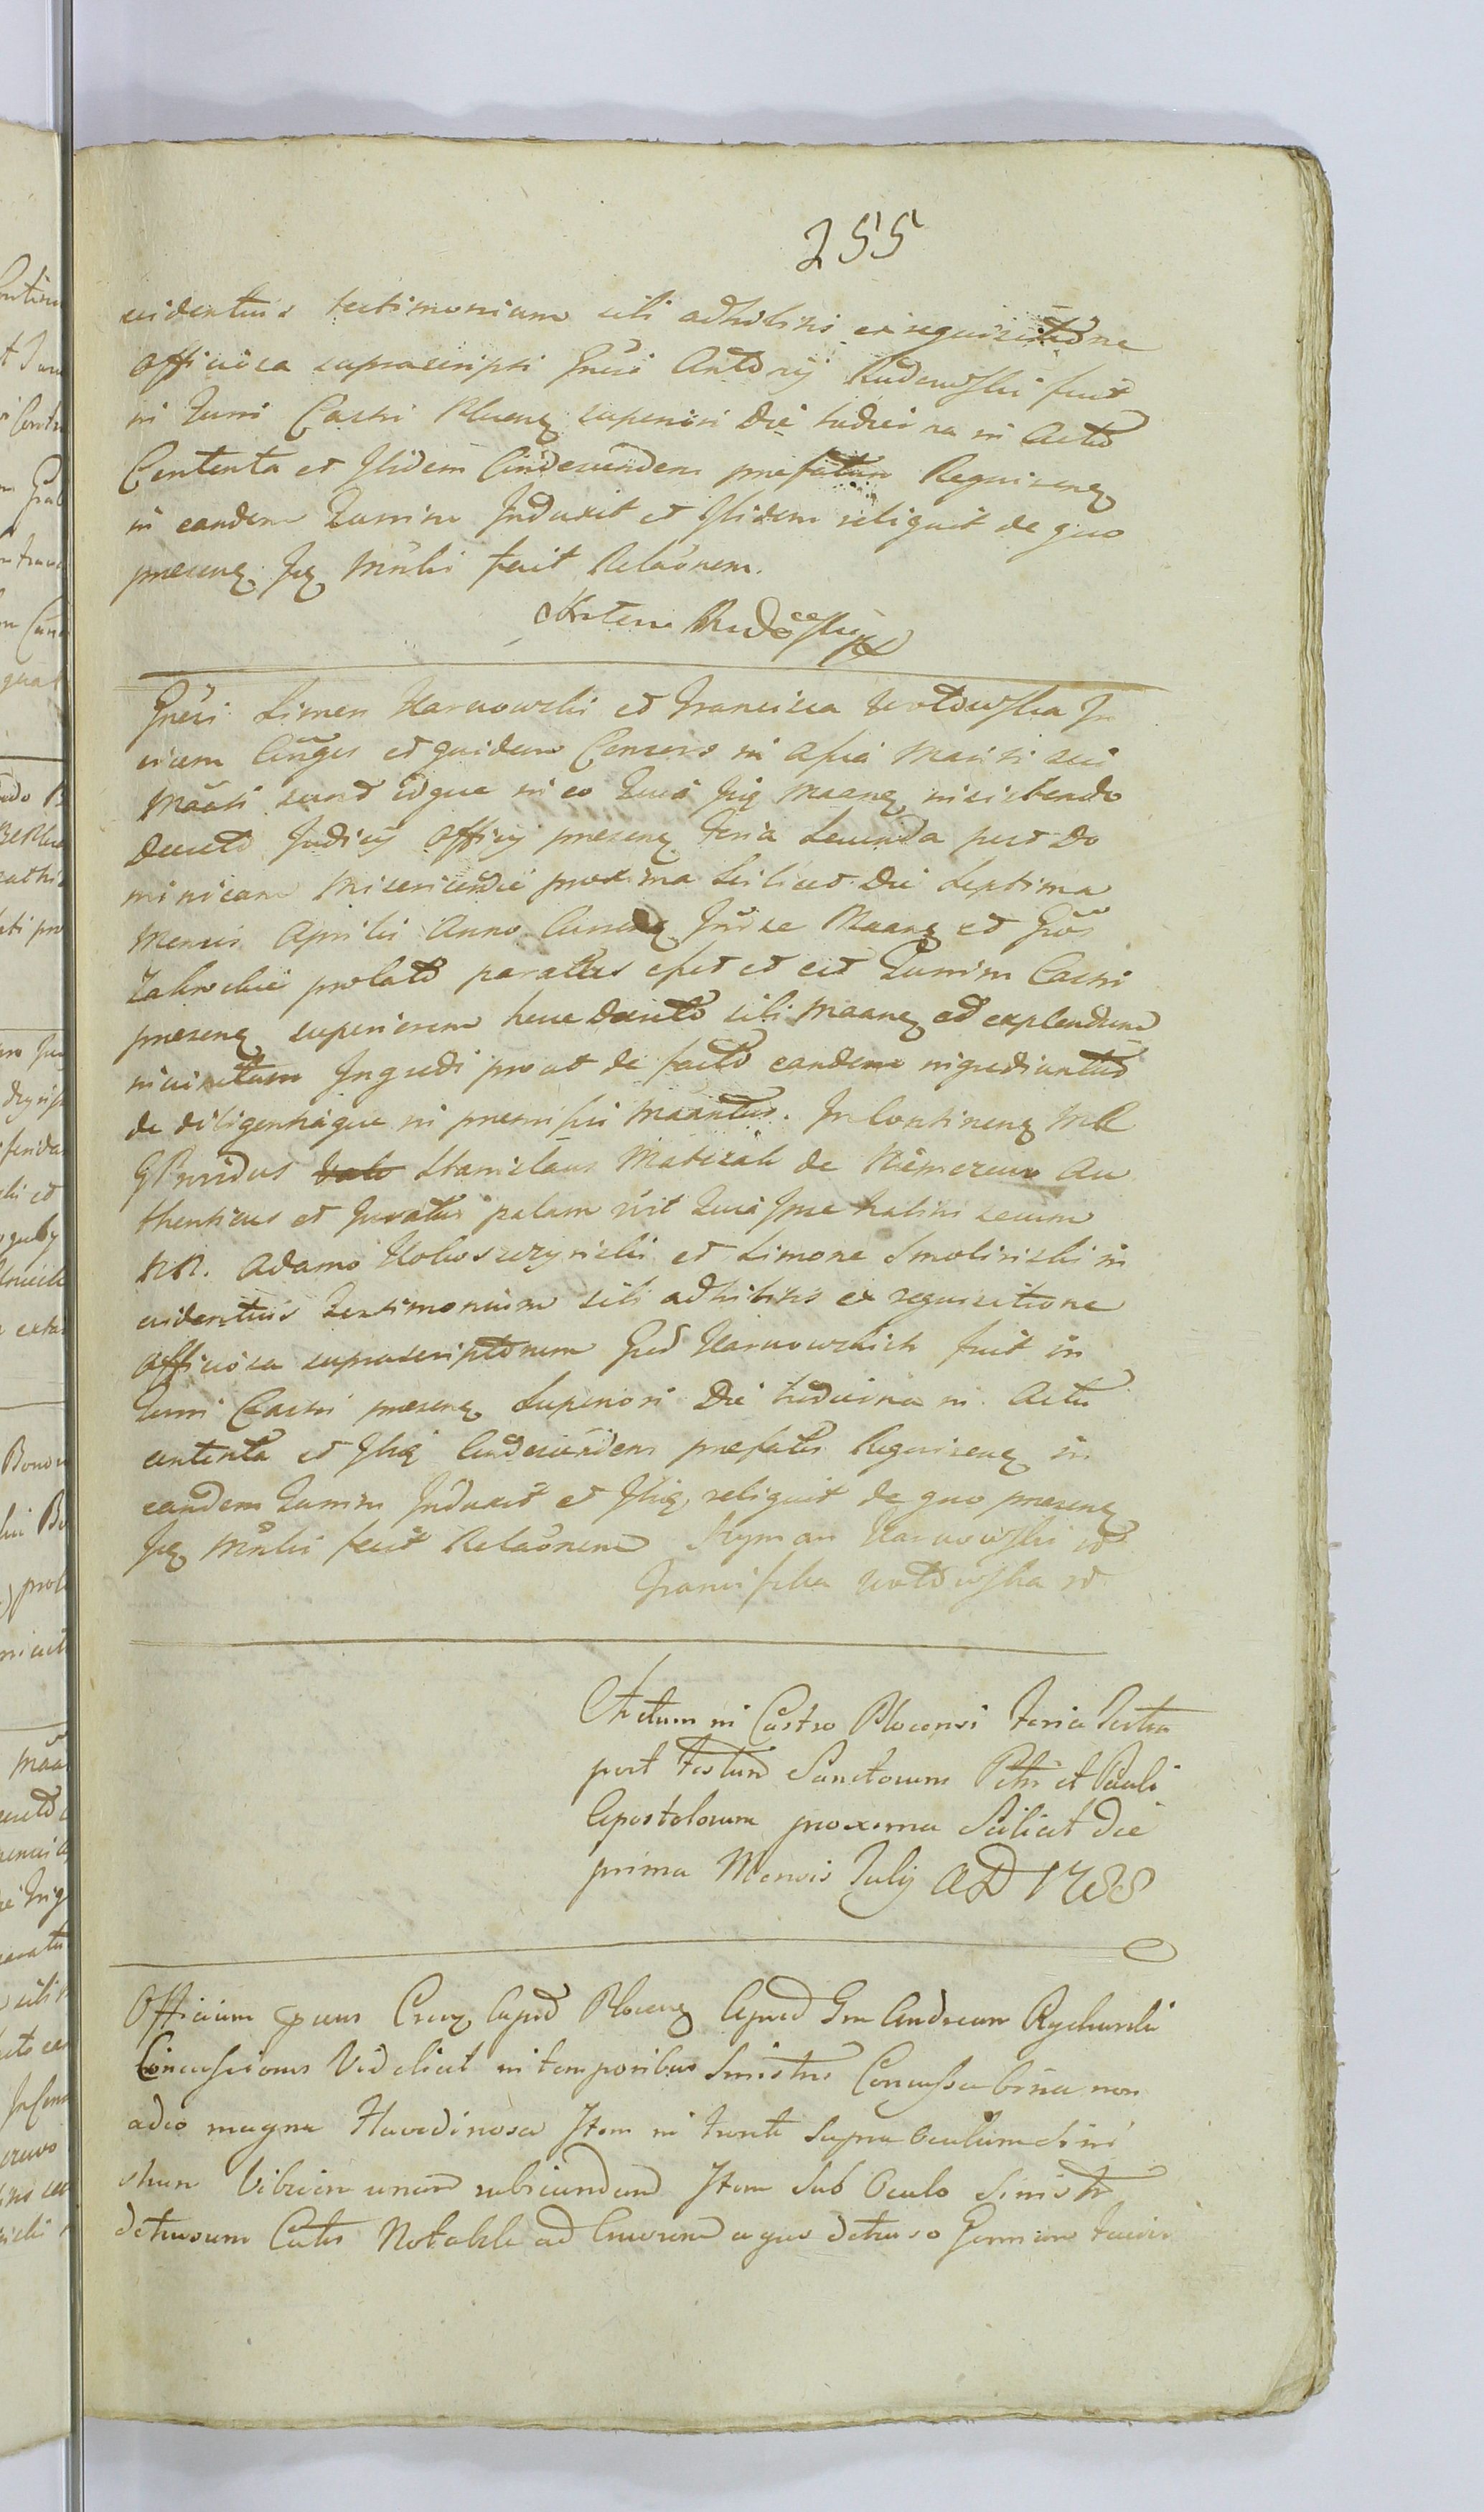 255
evidentius testimonium sibi adhibitis ex requisitione
officiosa suprascripti Gnẽsi Antonij Rudowski fuit
in Turri Castri Plocenẽ superiori Die hodierna in Actis
Contenta et Ibidem Condescendens prefatum Requirenẽ
in eandem Turrim Induxit et Ibidem reliquit de quo
presenẽ Jẽ Mnĩsti fecit Relaõnem.
Antoni Rudoski
Gnẽsi Simon Karwowski et Francisca Wołowska In
vicem Conjuges et quidem Consors in Assia Mariti sui
Maãti sunt idque in eo Quia Jpi Maanẽ insistendo
Decreto Judicij Officij presenẽ Feria Secunda post Do
minicam Misericordiæ proxima Scilicet Die Septima
Mensis Aprilis Anno Currenẽ Inter se Maanẽ et Gnõs
Zakrockie prolato paratus esset et est Turrim Castri
presenẽ superiorem hocce Decreto sibi Maanẽ ad explendum
Ingredi prout de facto eandem ingrediuntur
de diligentiaque in premissis Maãntur. In Continenẽ M R
G Providus Stanislaus Matczak de Niemczewo Au
thenticus et Juratus palam rcit Quia Ipse habitis secum
NN. Adamo Kokoszczynski et Simone Smolinski in
evidentius Testimonium sibi adhibitis ex requisitione
officiosa suprascriptorum Gnõ Karwowskich fuit in
Turri Castri presenẽ Superiori Die hodierna in Actis
contenta et Ibiẽ Condescendens prefatos Requirenẽ in
eandem Turrim Induxit et Ibiẽ reliquit de quo presenẽ
Jẽ Mnĩsti fecit Relaõnem Szyman Karwowski
Franciszka Wołowska
Actum in Castro Plocensi Feria Tertia
post Festum Sanctorum Petri et Pauli
Apostolorum proxima Scilicet Die
prima Mensis Julij AD 1788
Officium Cap̃ Plocenẽ Apud Gm Andream Rychowski
Concussiones Videlicet in temporibus Sinistris Concussa bina non
adeo magna Flavedinosa Item in fronte Supra Oculum Sini
strum Vibicem unam rubicundam Item Sub Oculo Sinistro
detrusum Cutis Notabile ad Cruorem a quo detruso